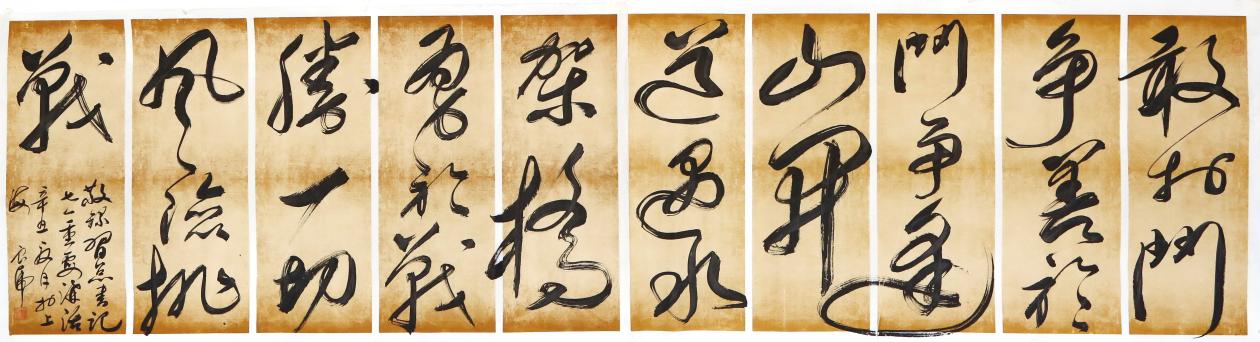 敢於鬥
争善於
鬥争逢
山開
道遇水
架橋
勇於戰
勝一切
風險挑
戰
敬錄習总書記
七一重要講話
辛丑夏月於上
海